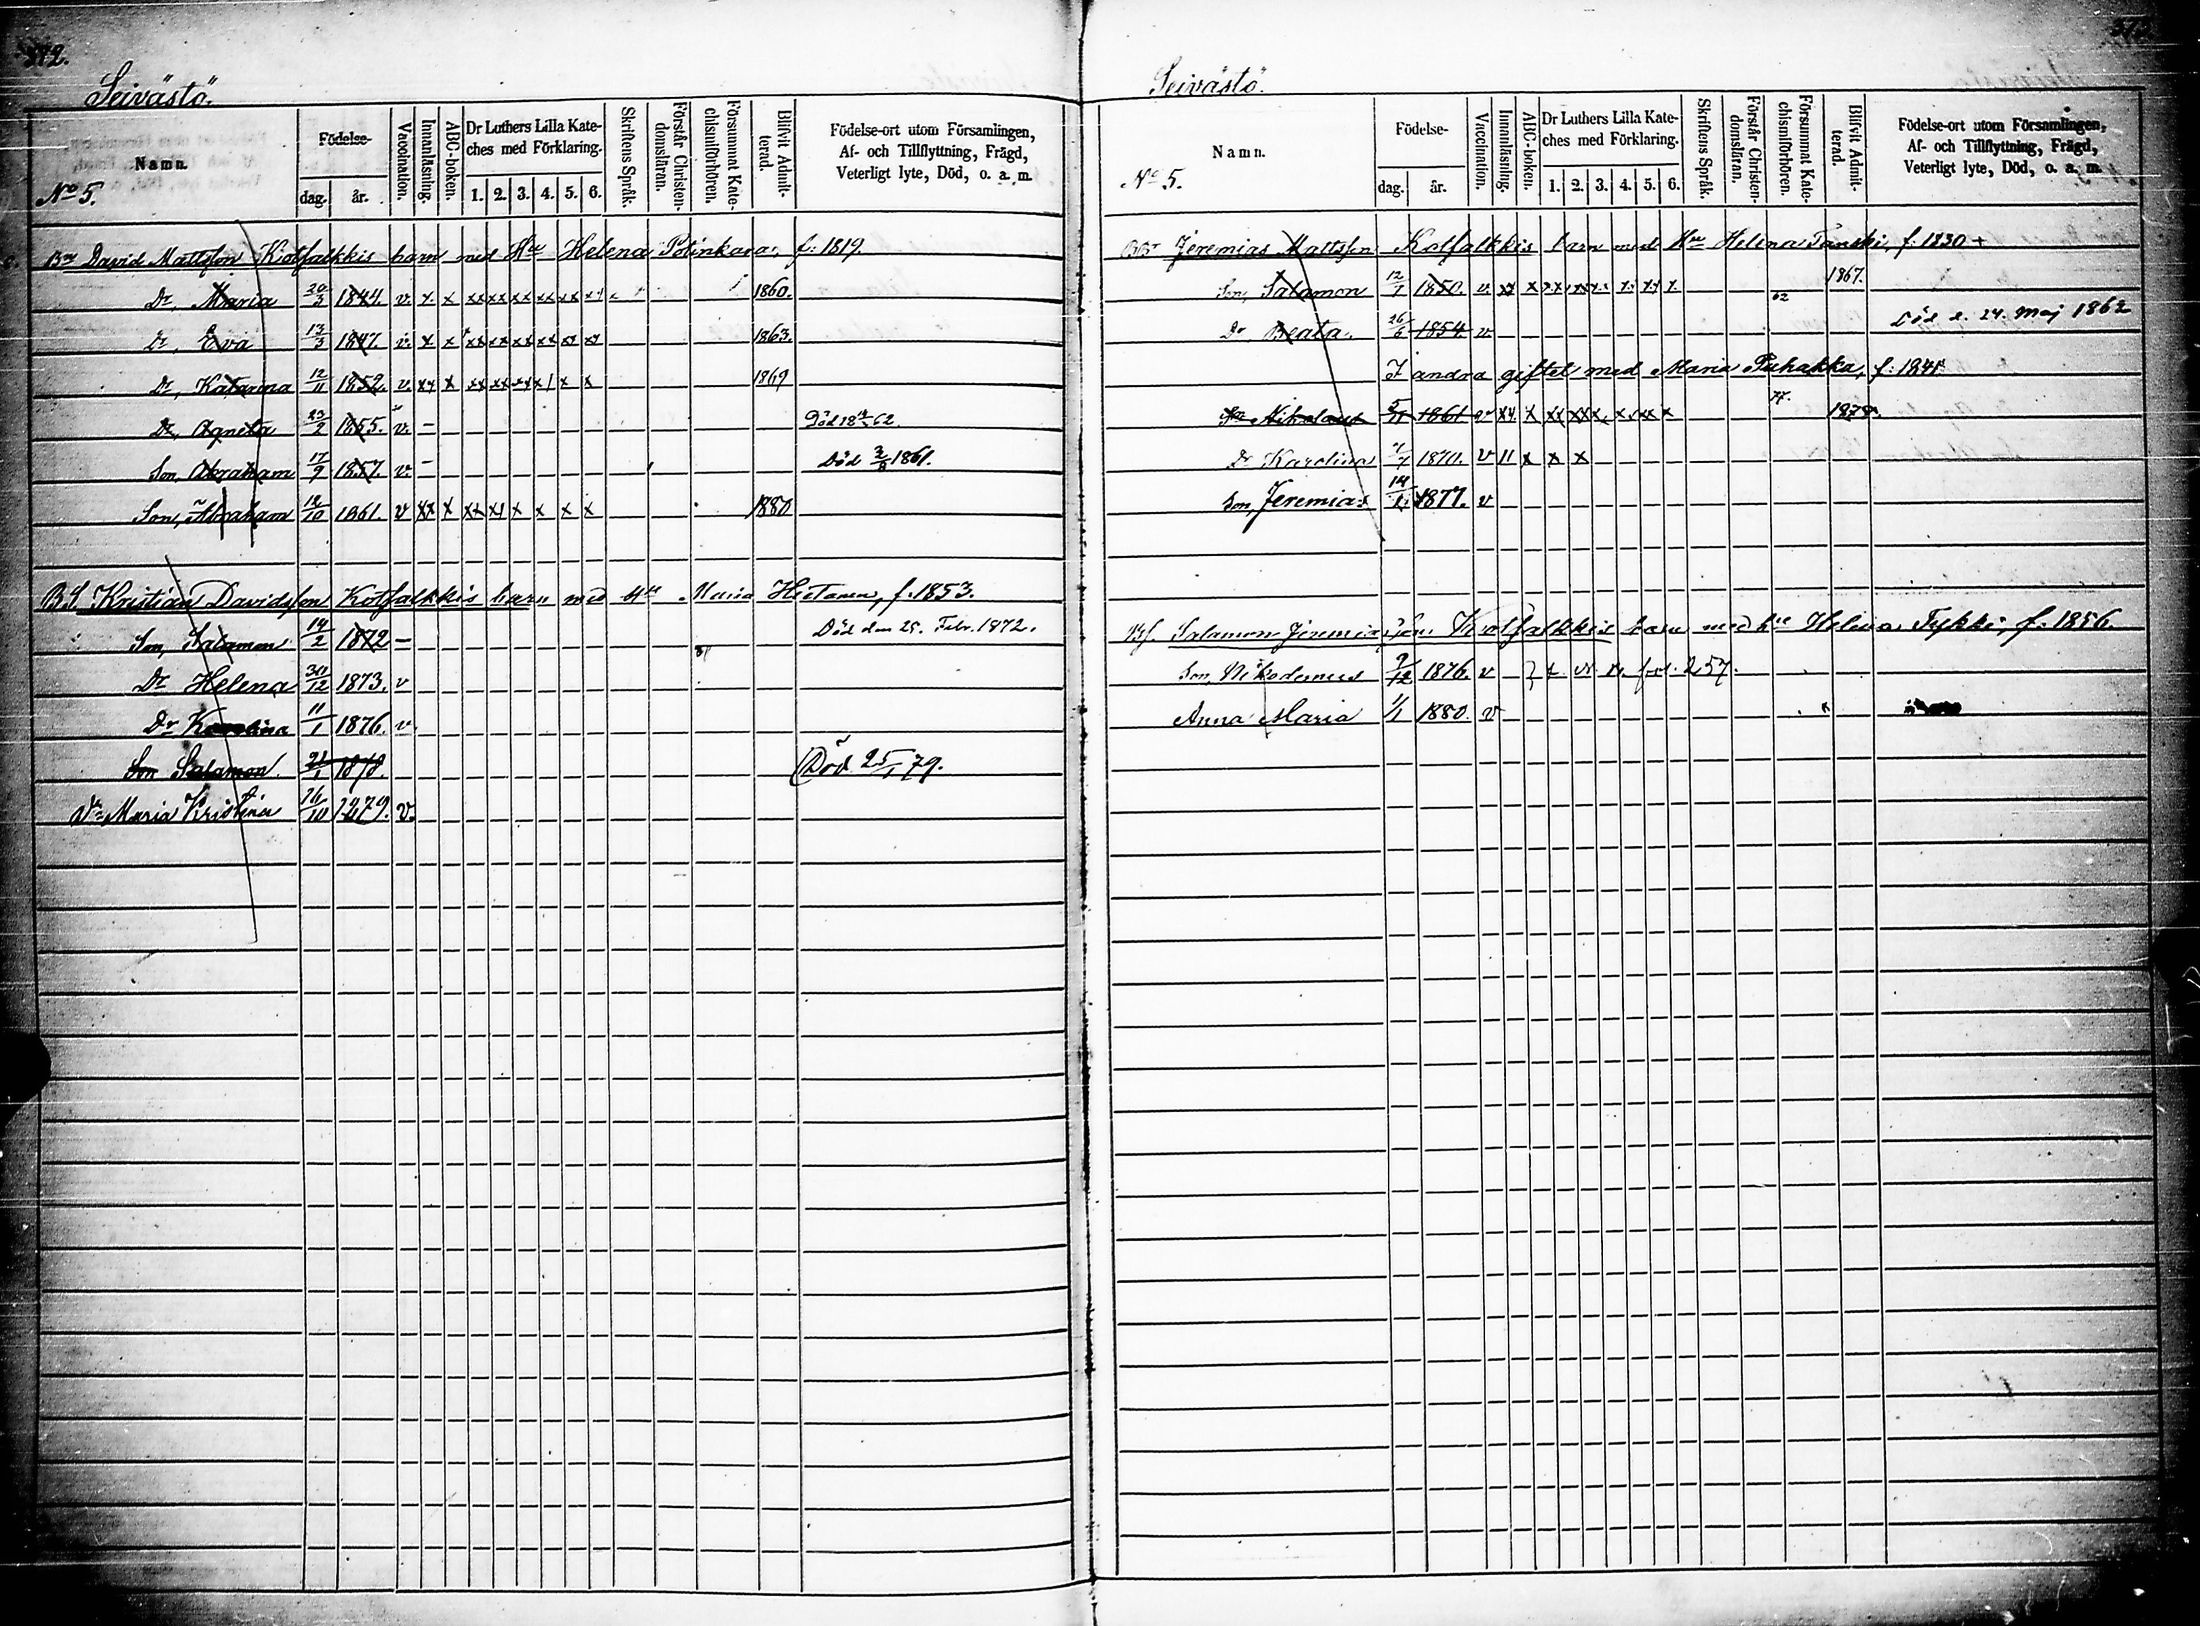 372.
Seivästö.
Namn.
Födelse-
dag.
år.
Vaccination.
Innanläsning.
ABC-boken.
Dr Luthers Lilla Kateches med Förklaring.
1. 2. 3. 4. 5. 6.
Skriftens Språk.
Förstår Christendomsläran.
Försummat Katechismiförhören.
Blifvit Admitterad.
Födelse-ort utom Församlingen,
Af- och Tillflyttning, Frägd,
Veterligt lyte, Död, o. a. m.
No 5.
David Mattsson Kotsalkkis barn med Hu Helena Potinkara, f. 1819.
Dr, Maria 20/3 1844. v. x x xx xx xx xx xx 1860.
Dr, Eva 13/3 1847. v. x x xx xx xx xx xx 1863.
Dr, Katarina 12/11 1852. v. xx x xx xx xx x x x 1869
Dr, Agneta 23/2 1855. v. – Död 62.
Son, Abraham 17/9 1857. v. – Död 1861.
Son, Abraham 12/10 1861. v xx x xx x x x x 1880
BS Kristian Davidsson Kotsalkkis barn med Hu Maria Hietanen, f. 1853.
Son, Salamon 14/2 1872 – Död den 25. Febr. 1872.
Dr Helena 31/12 1873. v
Dr Karolina 11/1 1876. v.
Son Salamon. 21/1 1878. Död 25/1 79.
Dr Maria Kristina 16/10 1879. v.
Seivästö.
Namn.
Födelse-
dag.
år.
Vaccination.
Innanläsning.
ABC-boken.
Dr Luthers Lilla Kateches med Förklaring.
1. 2. 3. 4. 5. 6.
Skriftens Språk.
Förstår Christendomsläran.
Försummat Katechismiförhören.
Blifvit Admitterad.
Födelse-ort utom Församlingen,
Af- och Tillflyttning, Frägd,
Veterligt lyte, Död, o. a. m.
No 5.
Jeremias Mattsson Kotsalkkis barn med Hu Helena Tanski, f. 1830 +
Son, Salamon 12/7 1850. v xx x xx xx x x x 1867.
Dr Beata. 26/6 1854. v 62 Död d. 24. Maj 1862
I andra giftet med Maria Puhakka, f. 1841
Son Nikolaus 5/11 1861 v xx. x xx xx x x x x 77. 1878.
Dr Karolina 1870. v 11 x x x
Son, Jeremias 14/1 1877. v
Bs. Salamon Jeremiasson Kotsalkkis barn med hu Helena Tykki, f. 1856.
Son, Nikodemus 9/12 1876. v fol. 257.
Anna Maria 1/1 1880. v